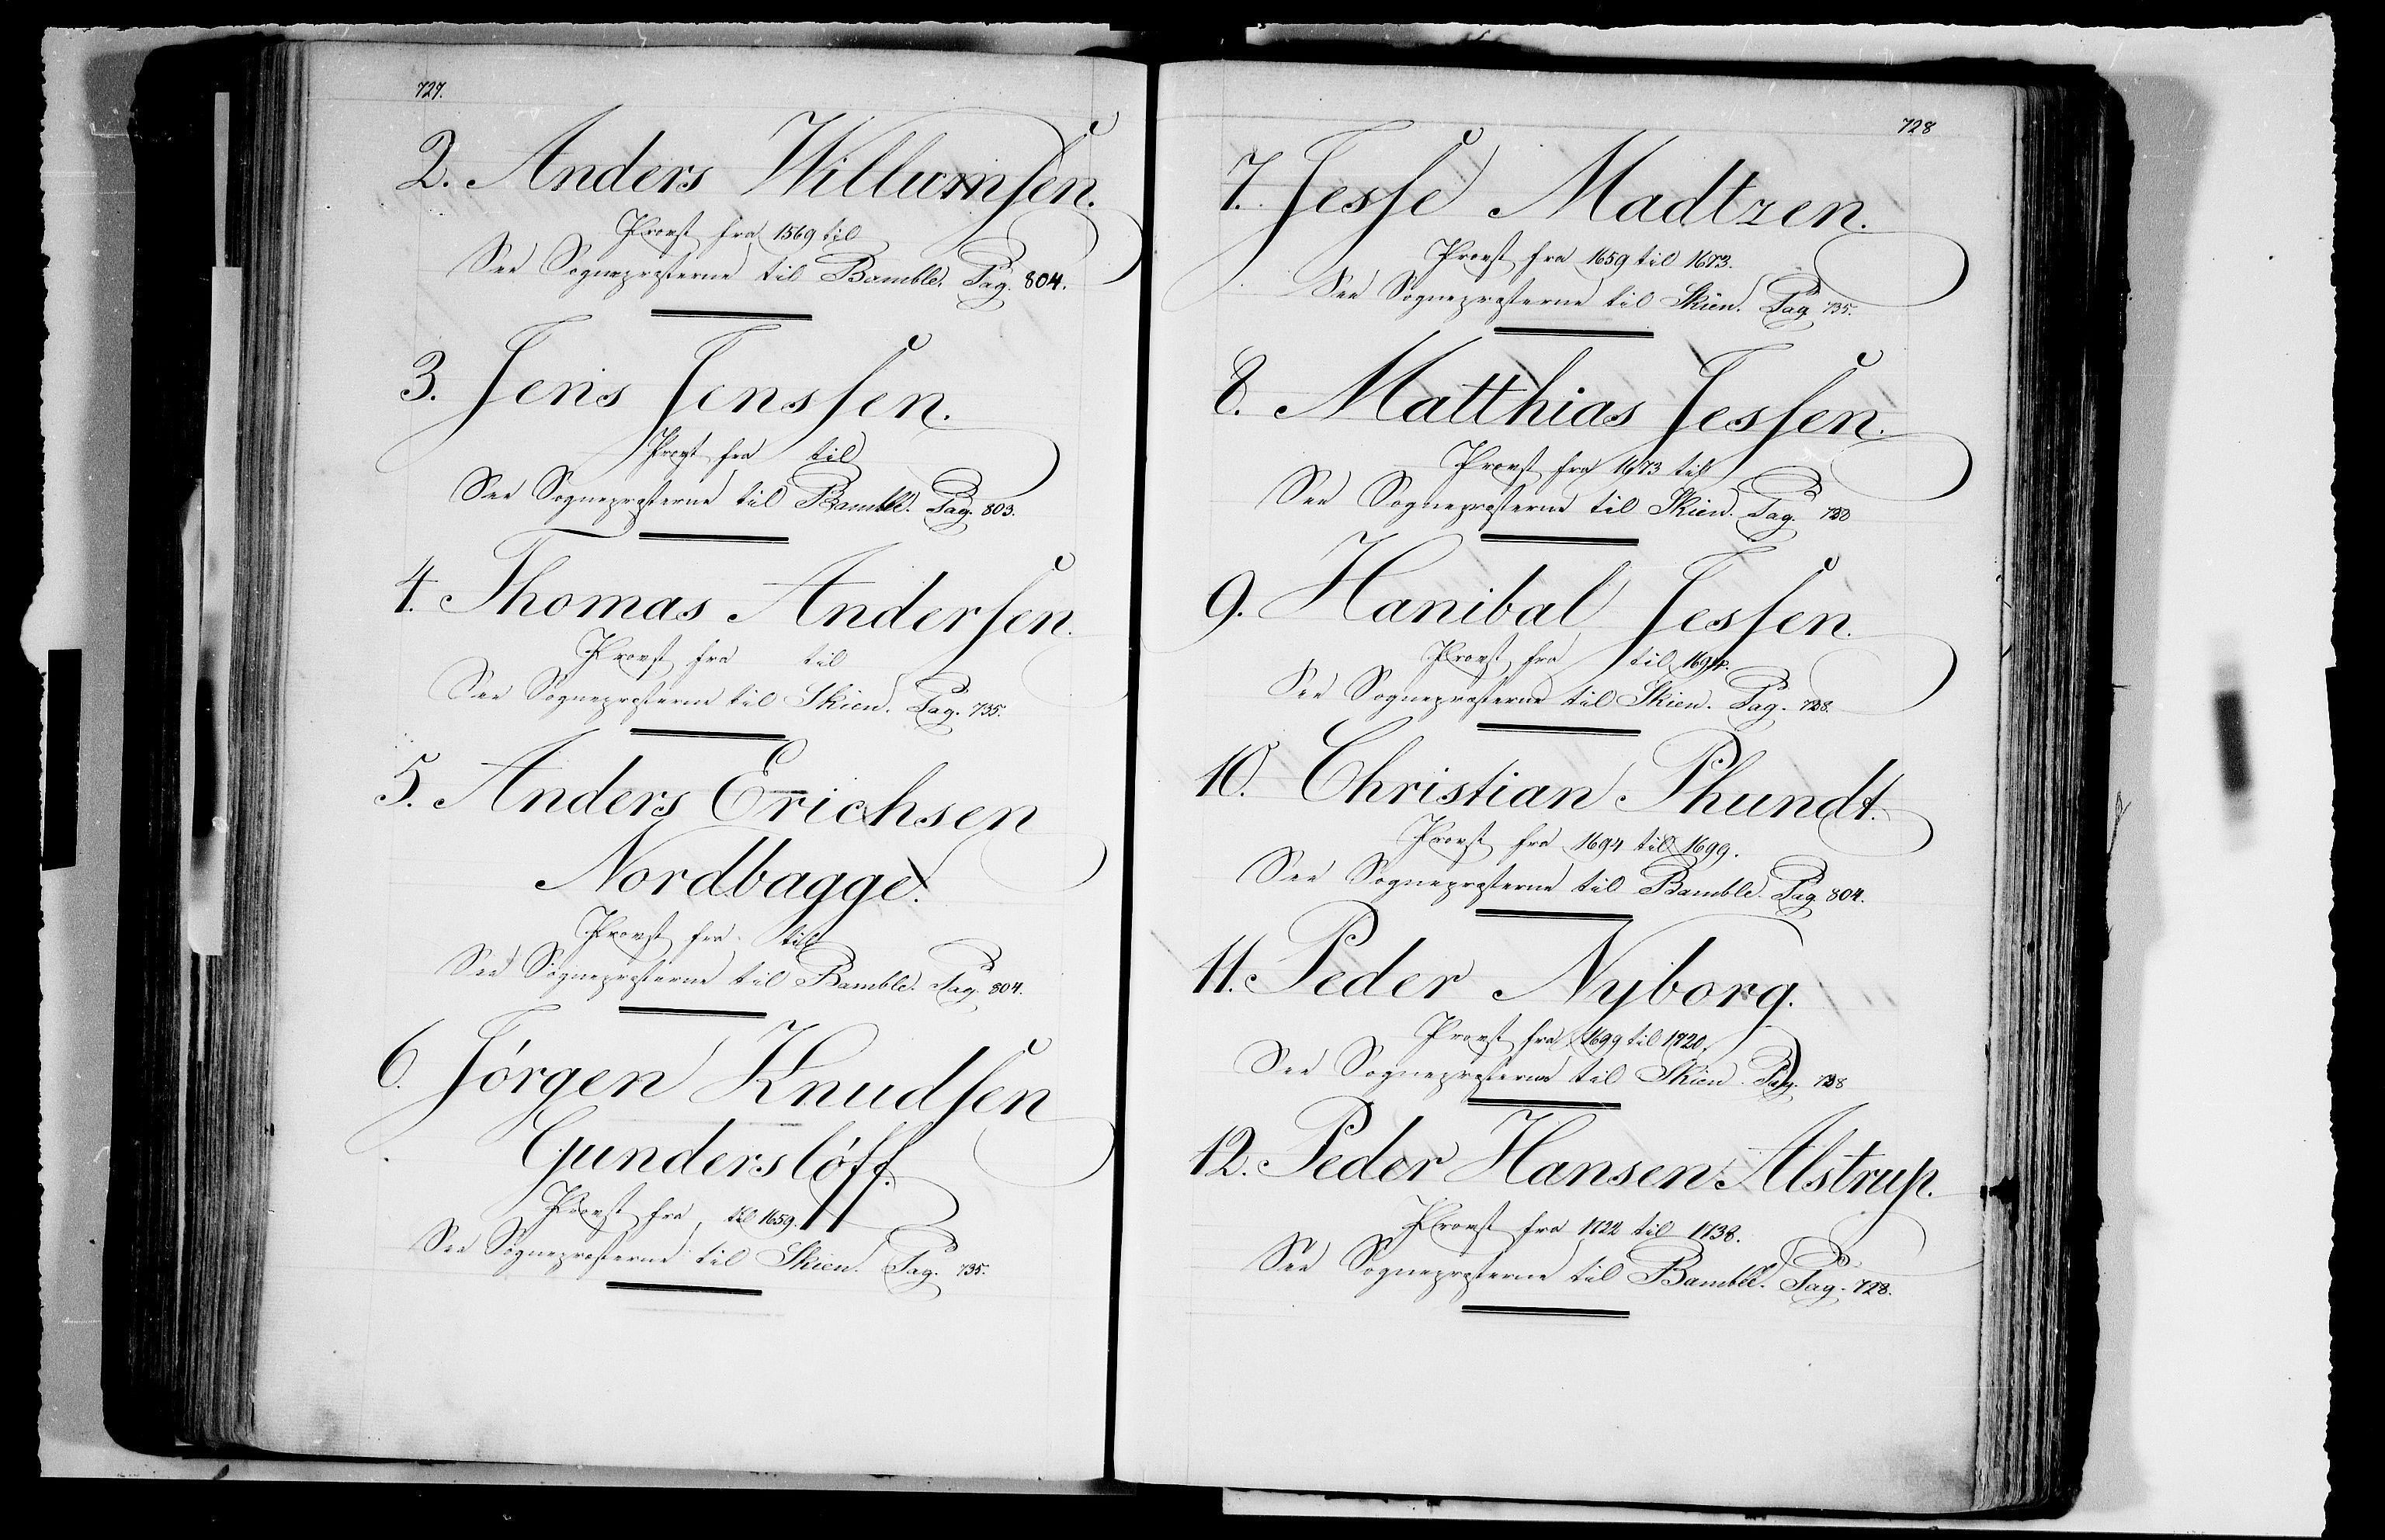 727.
2. Anders Willumsen.
Provst fra 1569 til
See Sognepræsterne til Bamble. Pag. 804.
3. Jens Jenssen.
Provst fra til
See Sognepræsterne til Bamble. Pag. 803.
4. Thomas Andersen.
Provst fra til
See Sognepræsterne til Skien. Pag. 735.
5. Anders Erichsen
Nordbagge.
Provst fra til
See Sognepræsterne til Bamble. Pag. 804.
6. Jörgen Knudsen
Gunderslöff.
Provst fra til 1659.
See Sognepræsterne til Skien. Pag. 735.
728
7. Jesse Madtzen.
Provst fra 1659 til 1673.
See Sognepræsterne til Skien. Pag 735.
8. Matthias Jessen.
Provst fra 1673 til
See Sognepræsterne til Skien. Pag.
9. Hanibal Jessen.
Provst fra til 1694.
See Sognepræsterne til Skien. Pag. 738.
10. Christian Phundt.
Provst fra 1694 til 1699.
See Sognepræsterne til Bamble. Pag. 804.
11. Peder Nyborg.
Provst fra 1699 til 1720.
See Sognepræsterne til Skien. Pag. 738
12. Peder Hansen Alstrup.
Provst fra 1722 til 1738.
See Sognepræsterne til Bamble. Pag. 728.